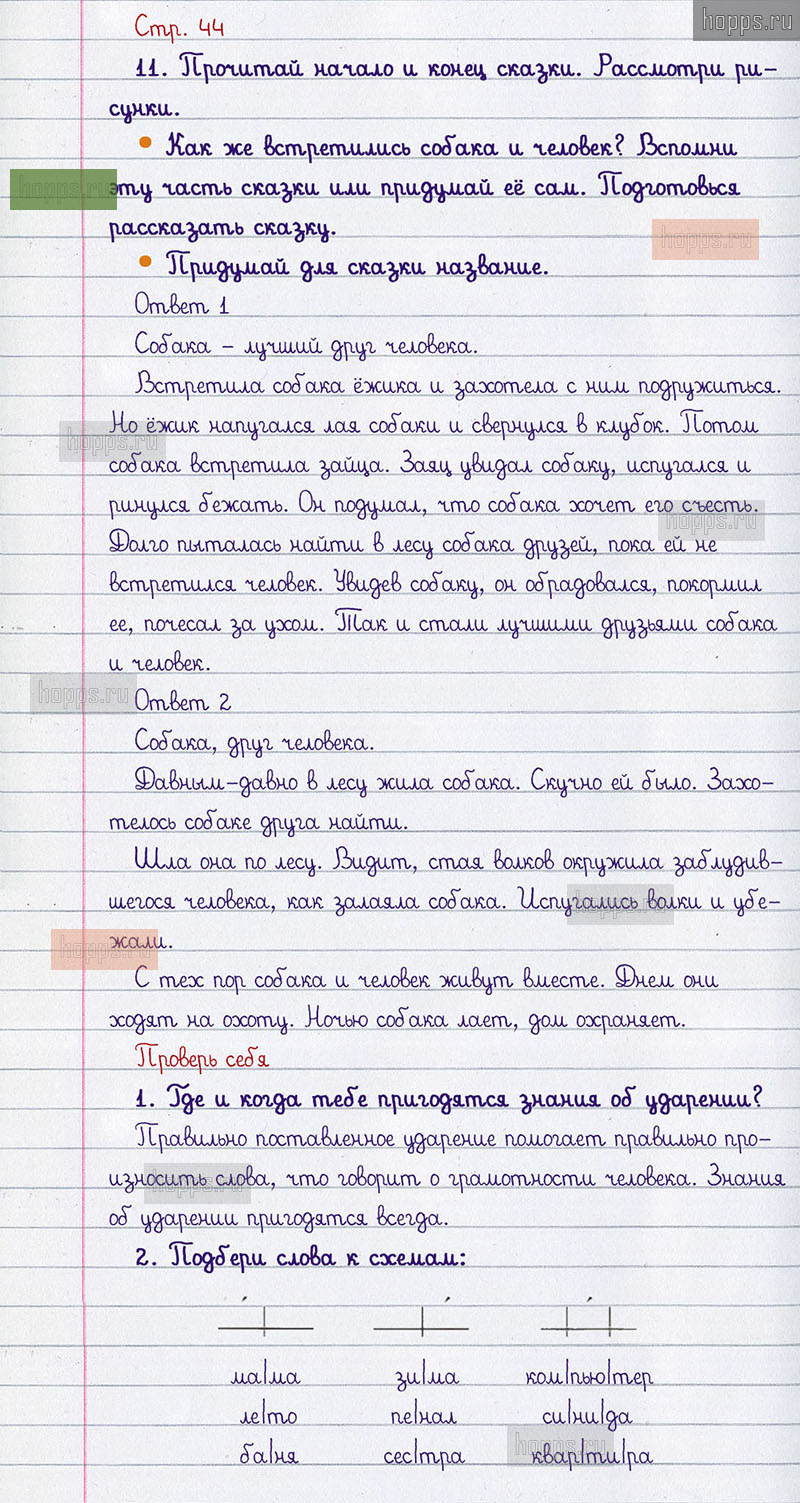 hopps.ru
Стр. 44
11. Прочитай начало и конец сказки. Рассмотри ри-
сунки.
• Как же встретились собака и человек? Вспомни
эту часть сказки или придумай её сам. Подготовься
рассказать сказку.
• Придумай для сказки название.
Ответ 1
Собака – лучший друг человека.
Встретила собака ёжика и захотела с ним подружиться.
Но ёжик напугался лая собаки и свернулся в клубок. Потом
собака встретила зайца. Заяц увидал собаку, испугался и
ринулся бежать. Он подумал, что собака хочет его съесть.
Долго пыталась найти в лесу собака друзей, пока ей не
встретился человек. Увидев собаку, он обрадовался, покормил
ее, почесал за ухом. Так и стали лучшими друзьями собака
и человек.
Ответ 2
Собака, друг человека.
Давным-давно в лесу жила собака. Скучно ей было. Захо-
телось собаке друга найти.
Шла она по лесу. Видит, стая волков окружила заблудив-
шегося человека, как залаяла собака. Испугались волки и убе-
жали.
С тех пор собака и человек живут вместе. Днем они
ходят на охоту. Ночью собака лает, дом охраняет.
Проверь себя
1. Где и когда тебе пригодятся знания об ударении?
Правильно поставленное ударение помогает правильно про-
износить слова, что говорит о грамотности человека. Знания
об ударении пригодятся всегда.
2. Подбери слова к схемам:
ма|ма зи|ма ком|пью|тер
ле|то пе|нал си|ни|ца
ба|ня сес|тра квар|ти|ра